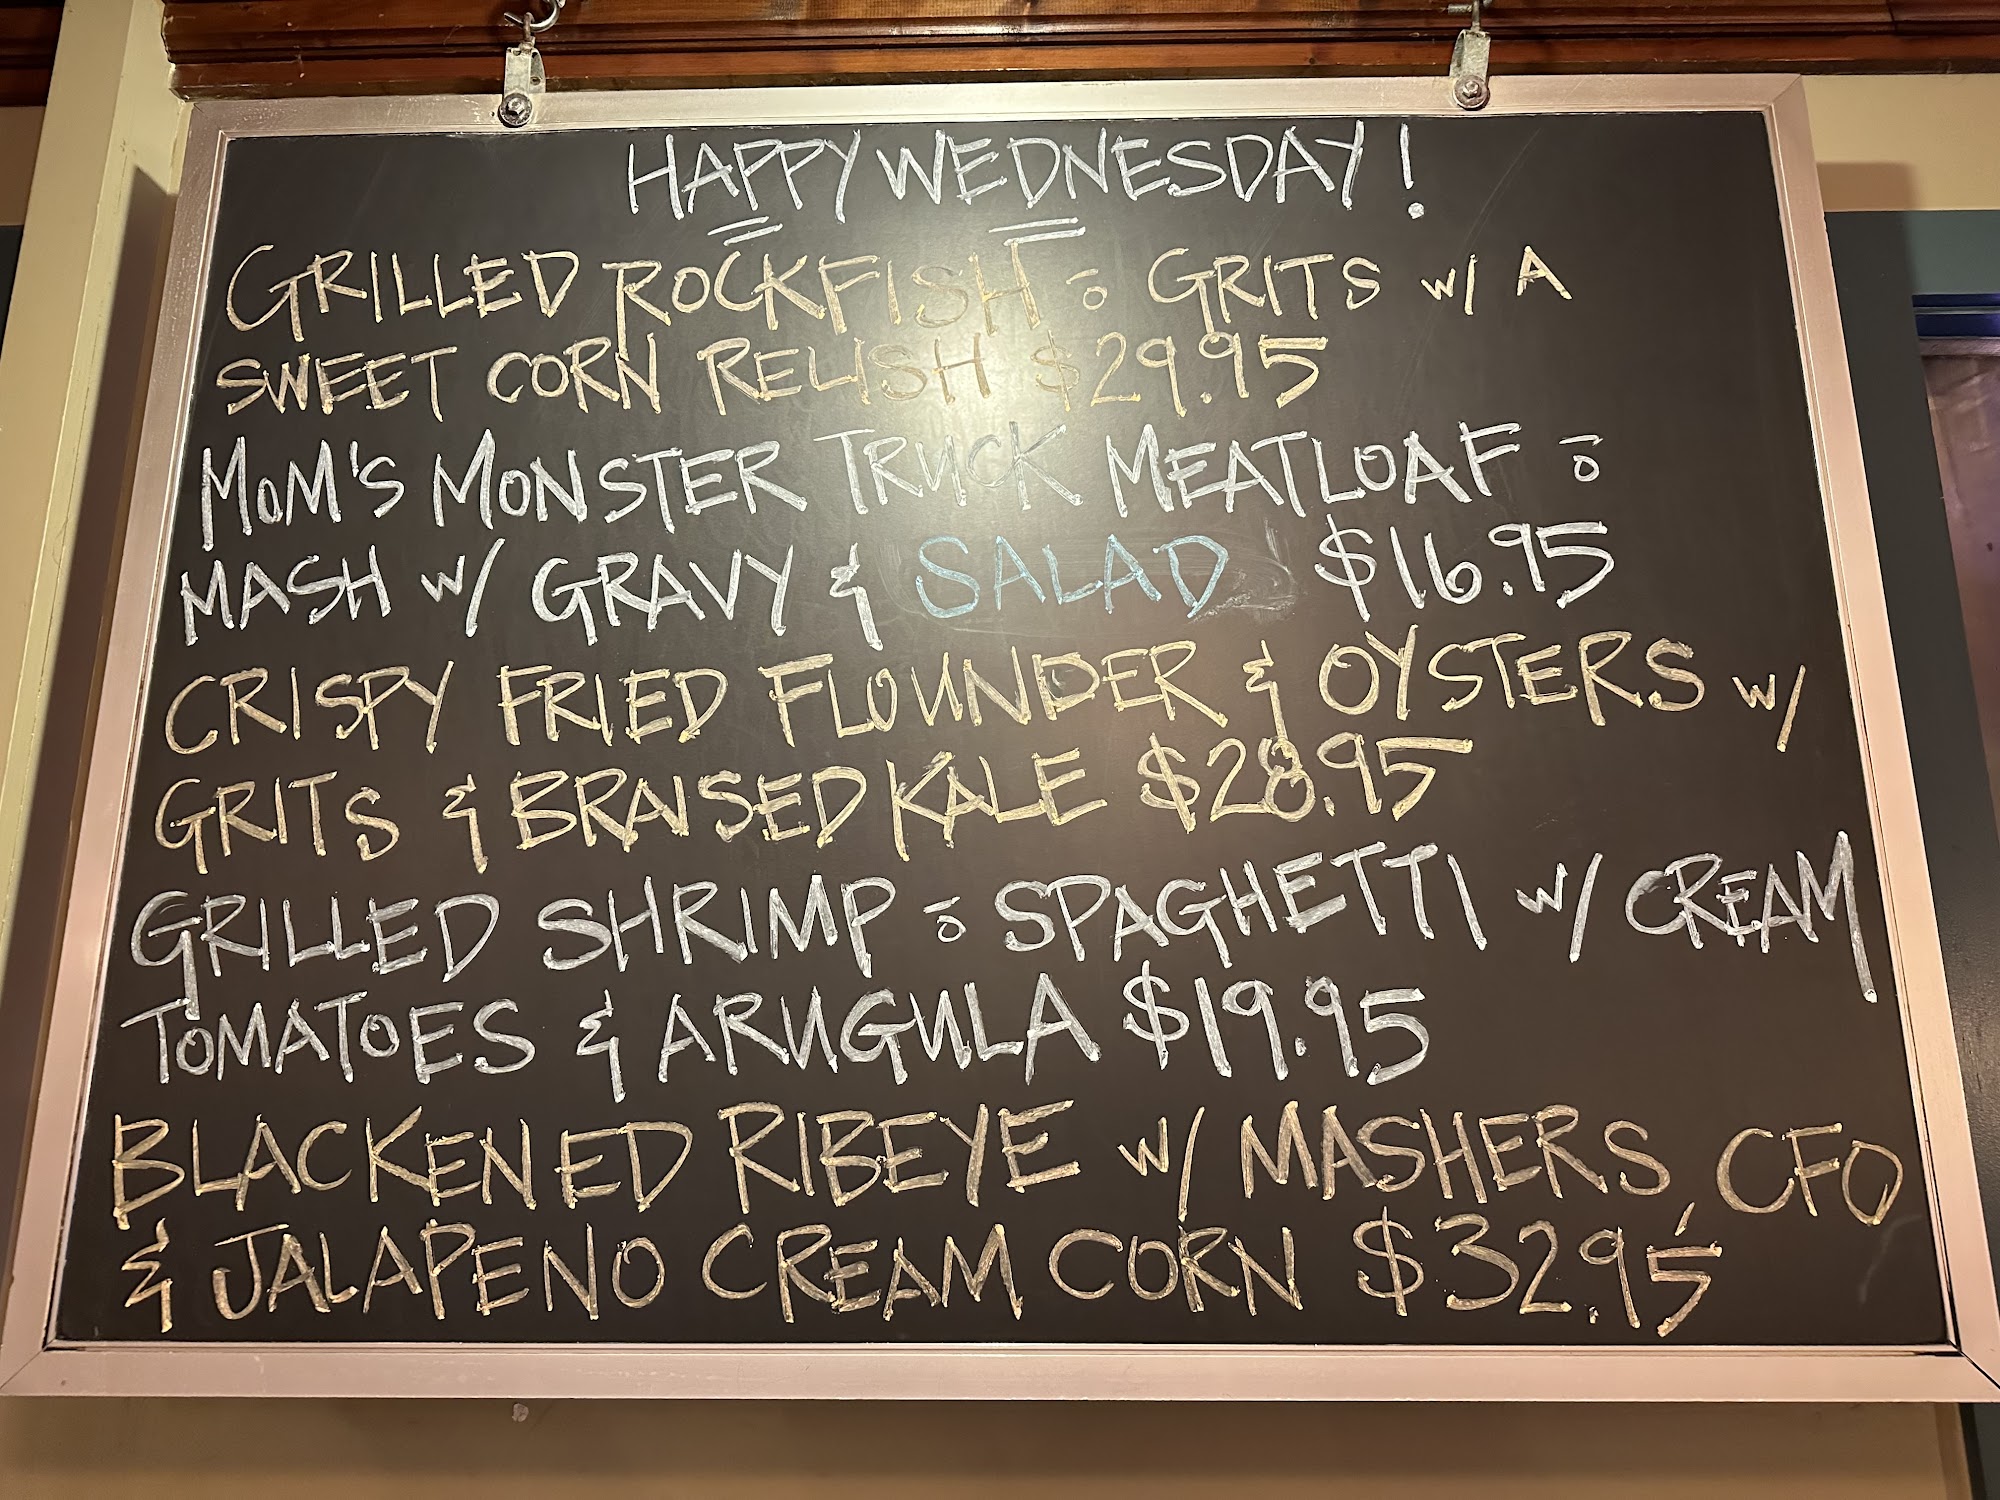 HAPPY WEDNESDAY!
GRILLED ROCKFISH ō GRITS W/ A
SWEET CORN RELISH $29.95
MOM'S MONSTER TRUCK MEATLOAF ō
MASH W/ GRAVY & SALAD $16.95
CRISPY FRIED FLOUNDER & OYSTERS W/
GRITS & BRAISED KALE $28.95
GRILLED SHRIMP ō SPAGHETTI W/ CREAM
TOMATOES & ARUGULA $19.95
BLACKENED RIBEYE W/ MASHERS, CFO
& JALAPENO CREAM CORN $32.95